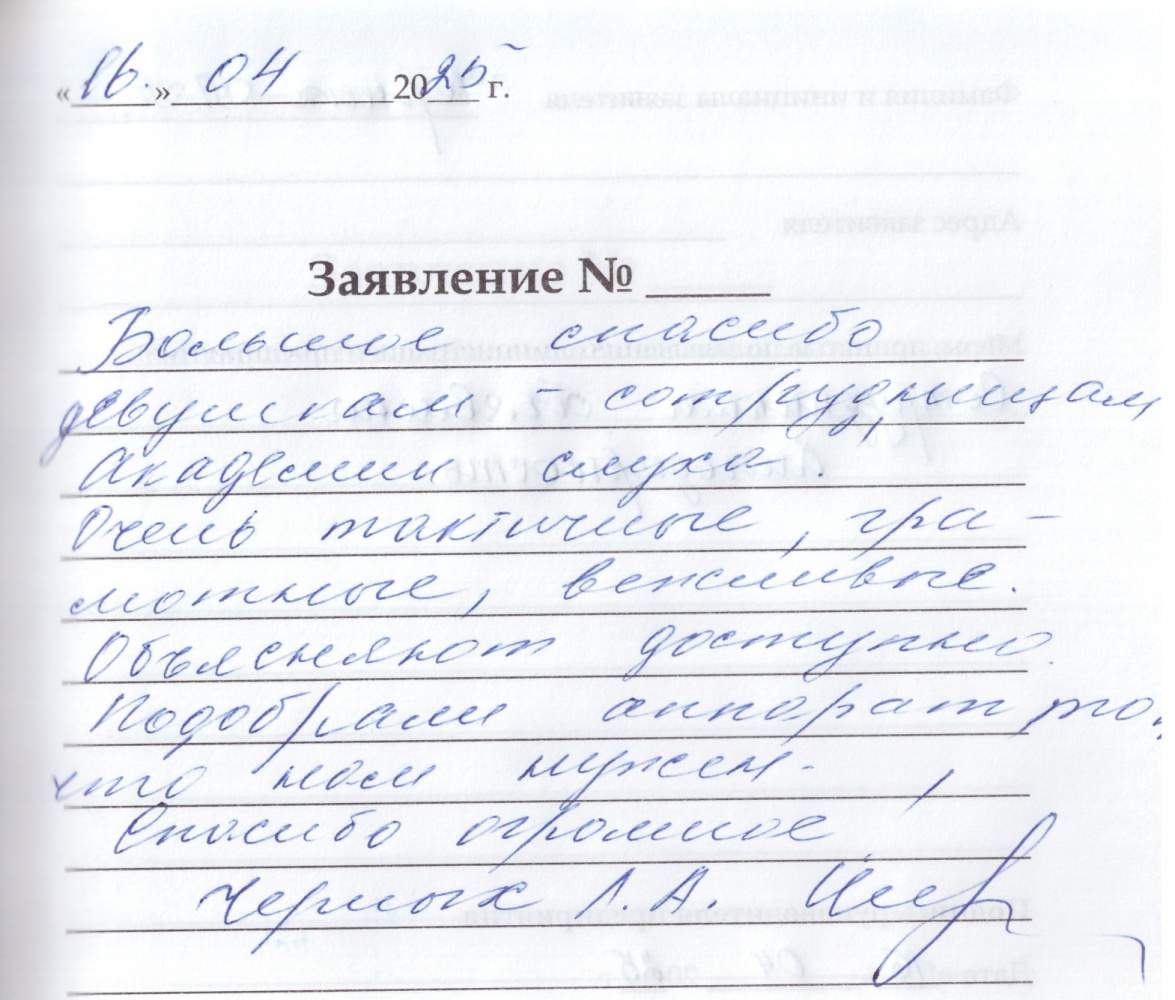 «16.» 04 2025 г.
Заявление №
Большое спасибо
девушкам сотрудницам
Академии слуха
Очень тактичные, гра-
мотные, вежливые.
Объясняют доступно
Подобрали аппарат то,
что нам нужен.,
Спасибо огромное
Черных Л. А.